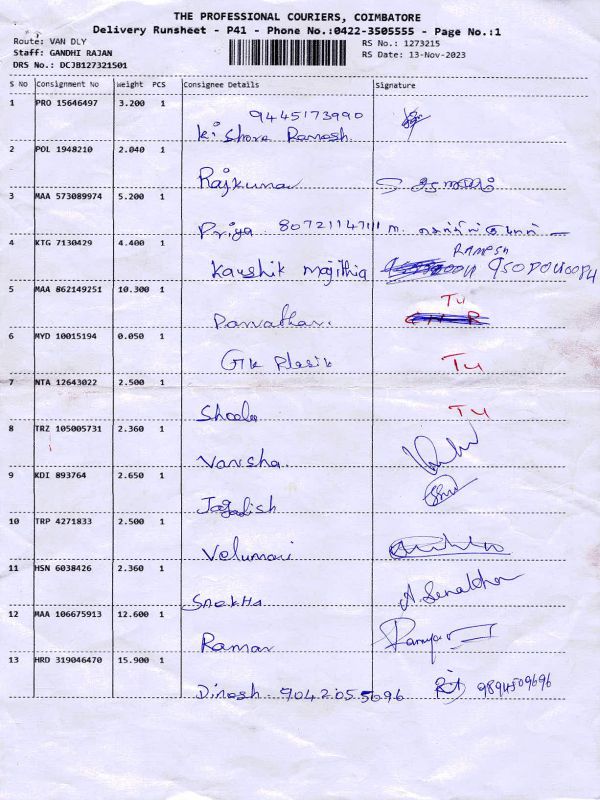 THE PROFESSIONAL COURIERS, COIMBATORE
Delivery Runsheet - P41 - Phone No.:0422-3505555 - Page No.:1
Route: VAN DLY
Staff: GANDHI RAJAN
DRS No.: DCJB127321501
RS No.: 1273215
RS Date: 13-Nov-2023
S No Consignment No Weight PCS Consignee Details Signature
1 PRO 15646497 3.200 1
9445173990
Kishore Ramesh
2 POL 1948210 2.040 1
Rajkumar
3 MAA 573089974 5.200 1
Priya
4 KTG 7130429 4.400 1
RAMESH
Kaushik Majithia
5 MAA 862149251 10.300 1
TU
6 MYD 10015194 0.050 1
GK Plasik TU
7 NTA 12643022 2.500 1
TU
8 TRZ 105005731 2.360 1
Varsha.
9 KDI 893764 2.650 1
Jagadish
10 TRP 4271833 2.500 1
Velumani
11 HSN 6038426 2.360 1
Snekha
12 MAA 106675913 12.600 1
Raman
13 HRD 319046470 15.900 1
Dinesh. 9042055696 9894509696